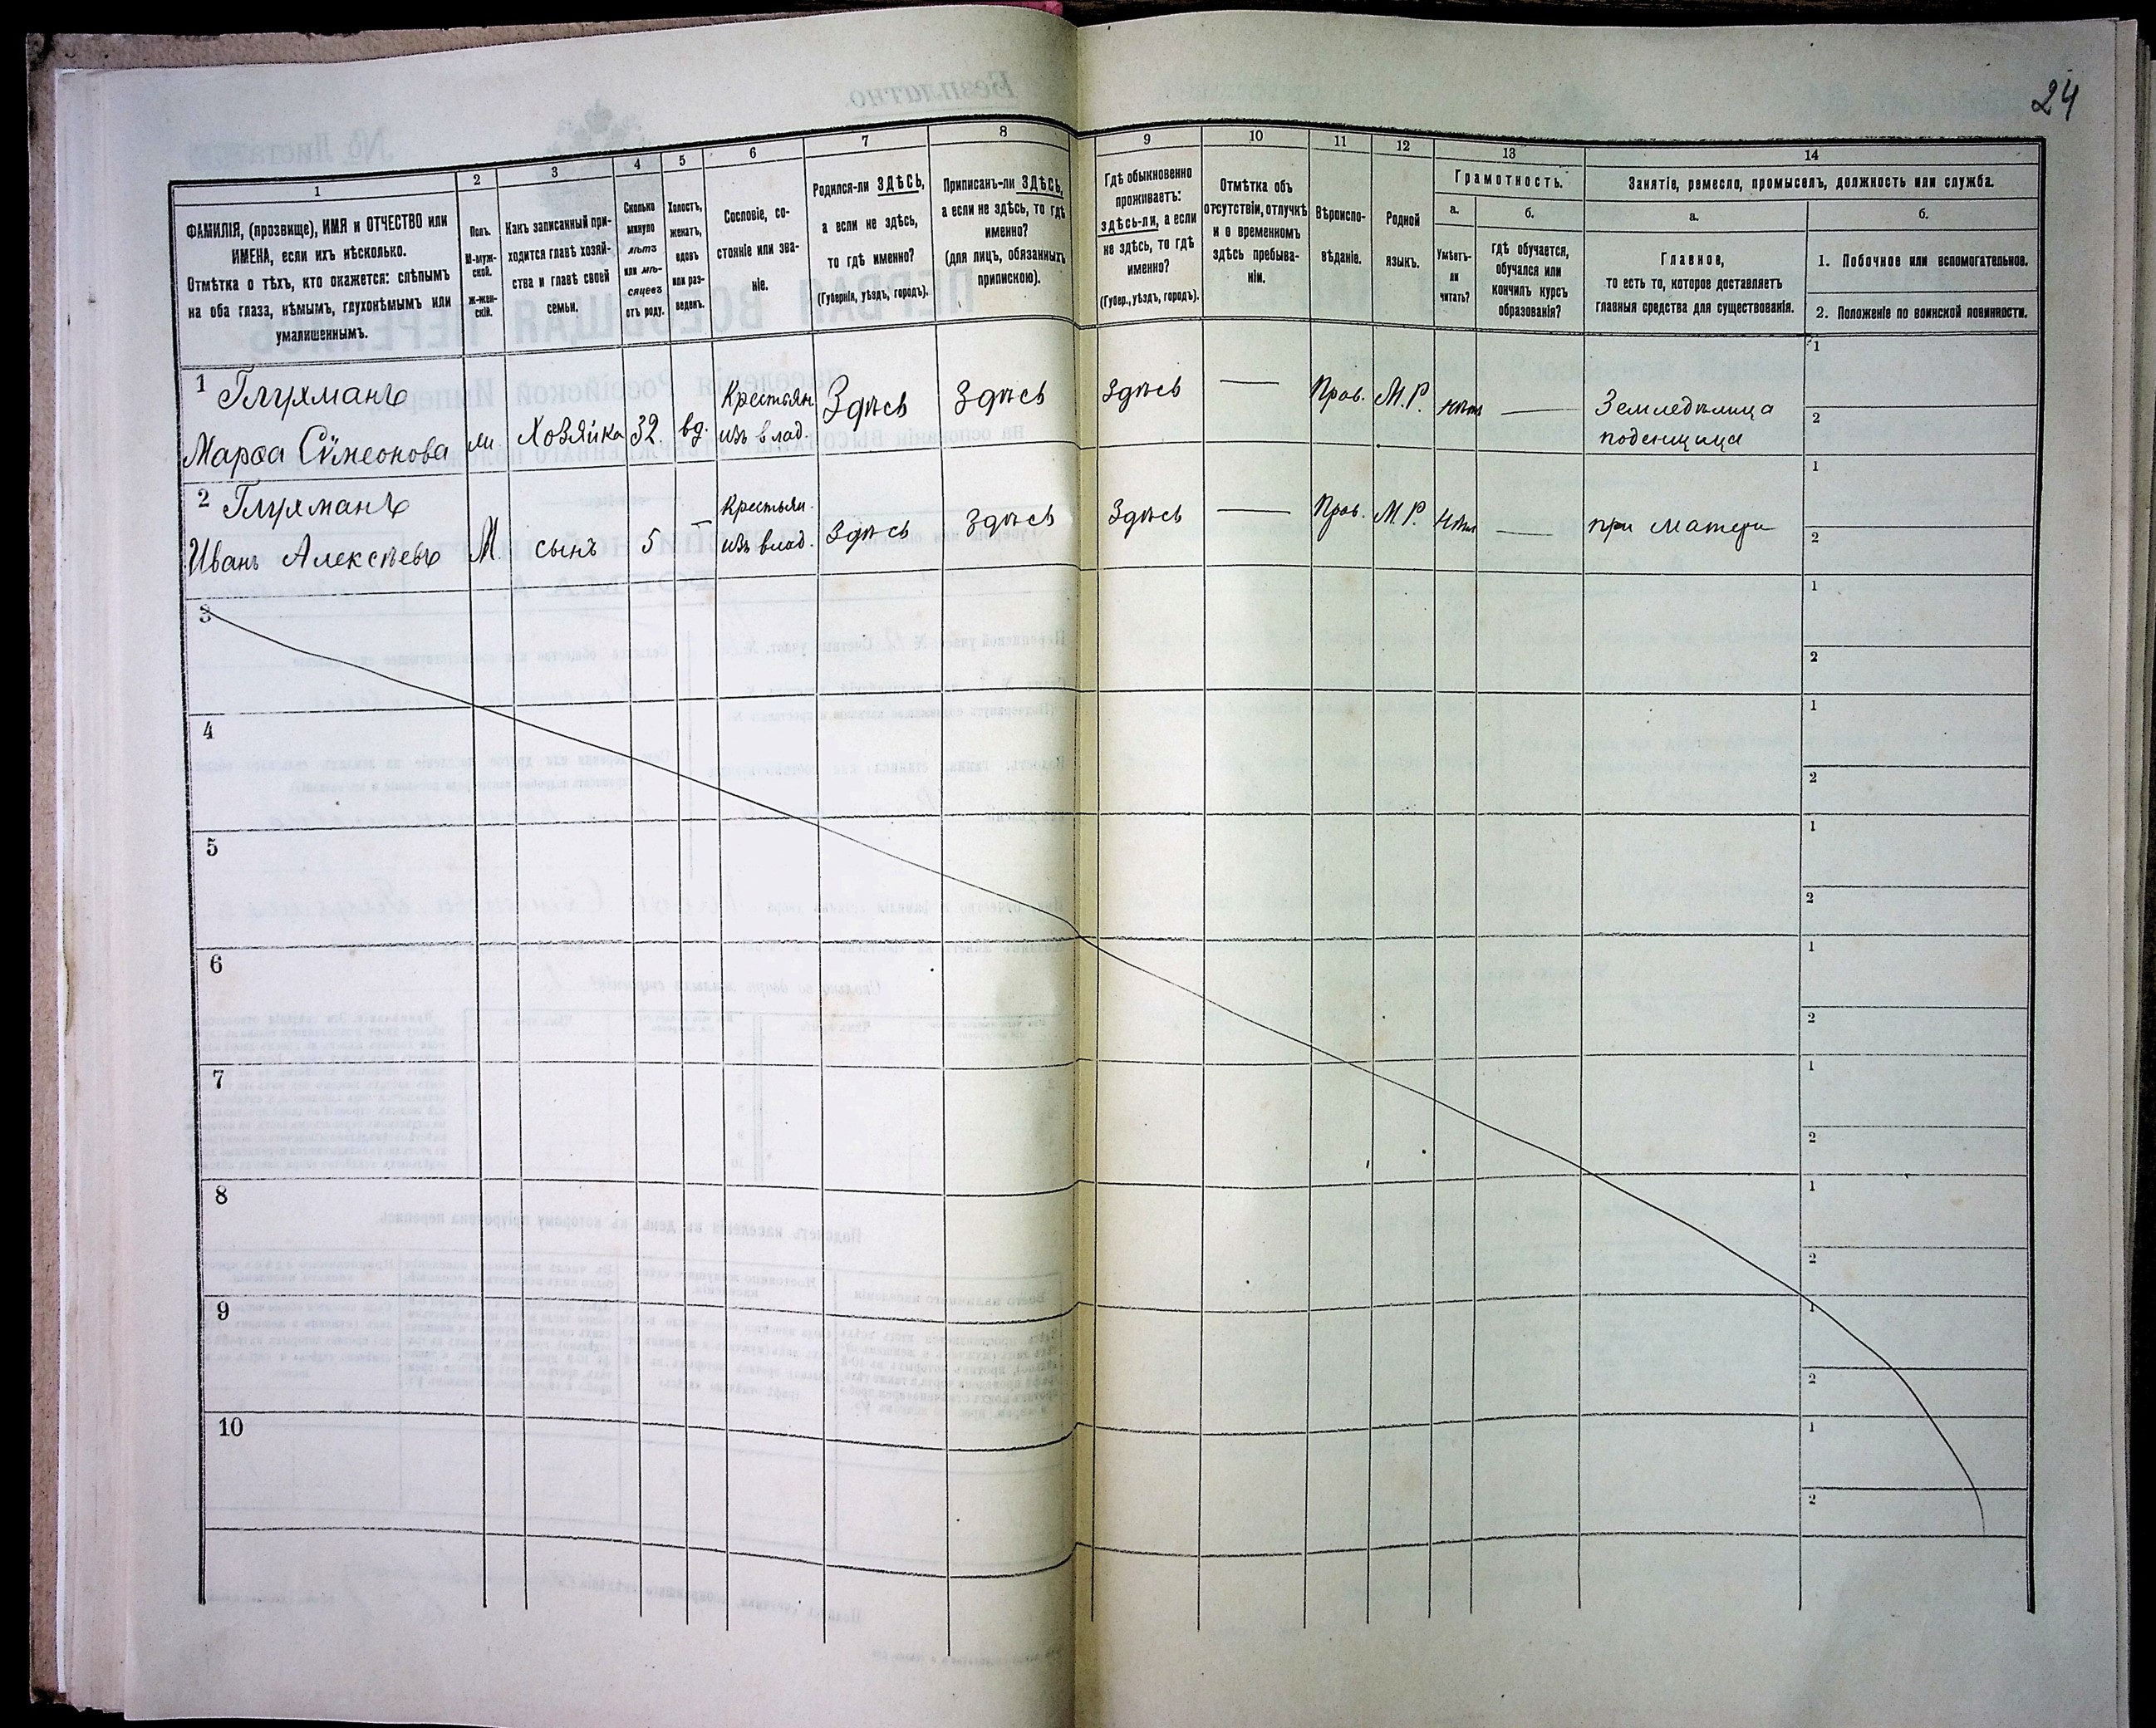 24
1
ФАМИЛІЯ, (прозвище), ИМЯ и ОТЧЕСТВО или
ИМЕНА, если ихъ нѣсколько.
Отмѣтка о тѣхъ, кто окажется: слѣпымъ
на оба глаза, нѣмымъ, глухонѣмымъ или
умалишеннымъ.
2
Полъ.
М-муж-
ской.
Ж-жен-
скій.
3
Какъ записанный при-
ходится главѣ хозяй-
ства и главѣ своей
семьи.
4
Сколько
минуло
лѣтъ
или мѣ-
сяцевъ
отъ роду.
5
Холостъ,
женатъ,
вдовъ
или раз-
веденъ.
6
Сословіе, со-
стояніе или зва-
ніе.
7
Родился-ли ЗДѢСЬ,
а если не здѣсь,
то гдѣ именно?
(Губернія, уѣздъ, городъ).
8
Приписанъ-ли ЗДѢСЬ,
а если не здѣсь, то гдѣ
именно?
(для лицъ, обязанныхъ
припискою).
9
Гдѣ обыкновенно
проживаетъ:
здѣсь-ли, а если
не здѣсь, то гдѣ
именно?
(Губер., уѣздъ, городъ).
10
Отмѣтка объ
отсутствіи, отлучкѣ
и о временномъ
здѣсь пребыва-
ніи.
11
Вѣроиспо-
вѣданіе.
12
Родной
языкъ.
13
Грамотность.
а.
Умѣетъ-
ли
читать?
б.
гдѣ обучается,
обучался или
кончилъ курсъ
образованія?
14
Занятіе, ремесло, промыселъ, должность или служба.
а.
Главное,
то есть то, которое доставляетъ
главныя средства для существованія.
б.
1. Побочное или вспомогательное.
2. Положеніе по воинской повинности.
1 Глухманъ
Марѳа Сѵмеонова
Хозяйка
32.
вд.
Крестьян
изъ влад.
Здѣсь
Здѣсь
Здѣсь
—
Прав.
М.Р.
нѣтъ
—
Земледѣлица
поденщица
1
2
2 Глухманъ
Иванъ Алексѣевъ
М.
сынъ
5
—
Крестьян.
изъ влад.
Здѣсь
Здѣсь
Здѣсь
—
Прав.
М.Р.
Нѣтъ
—
при матери
1
2
3
1
2
4
1
2
5
1
2
6
1
2
7
1
2
8
1
2
9
1
2
10
1
2